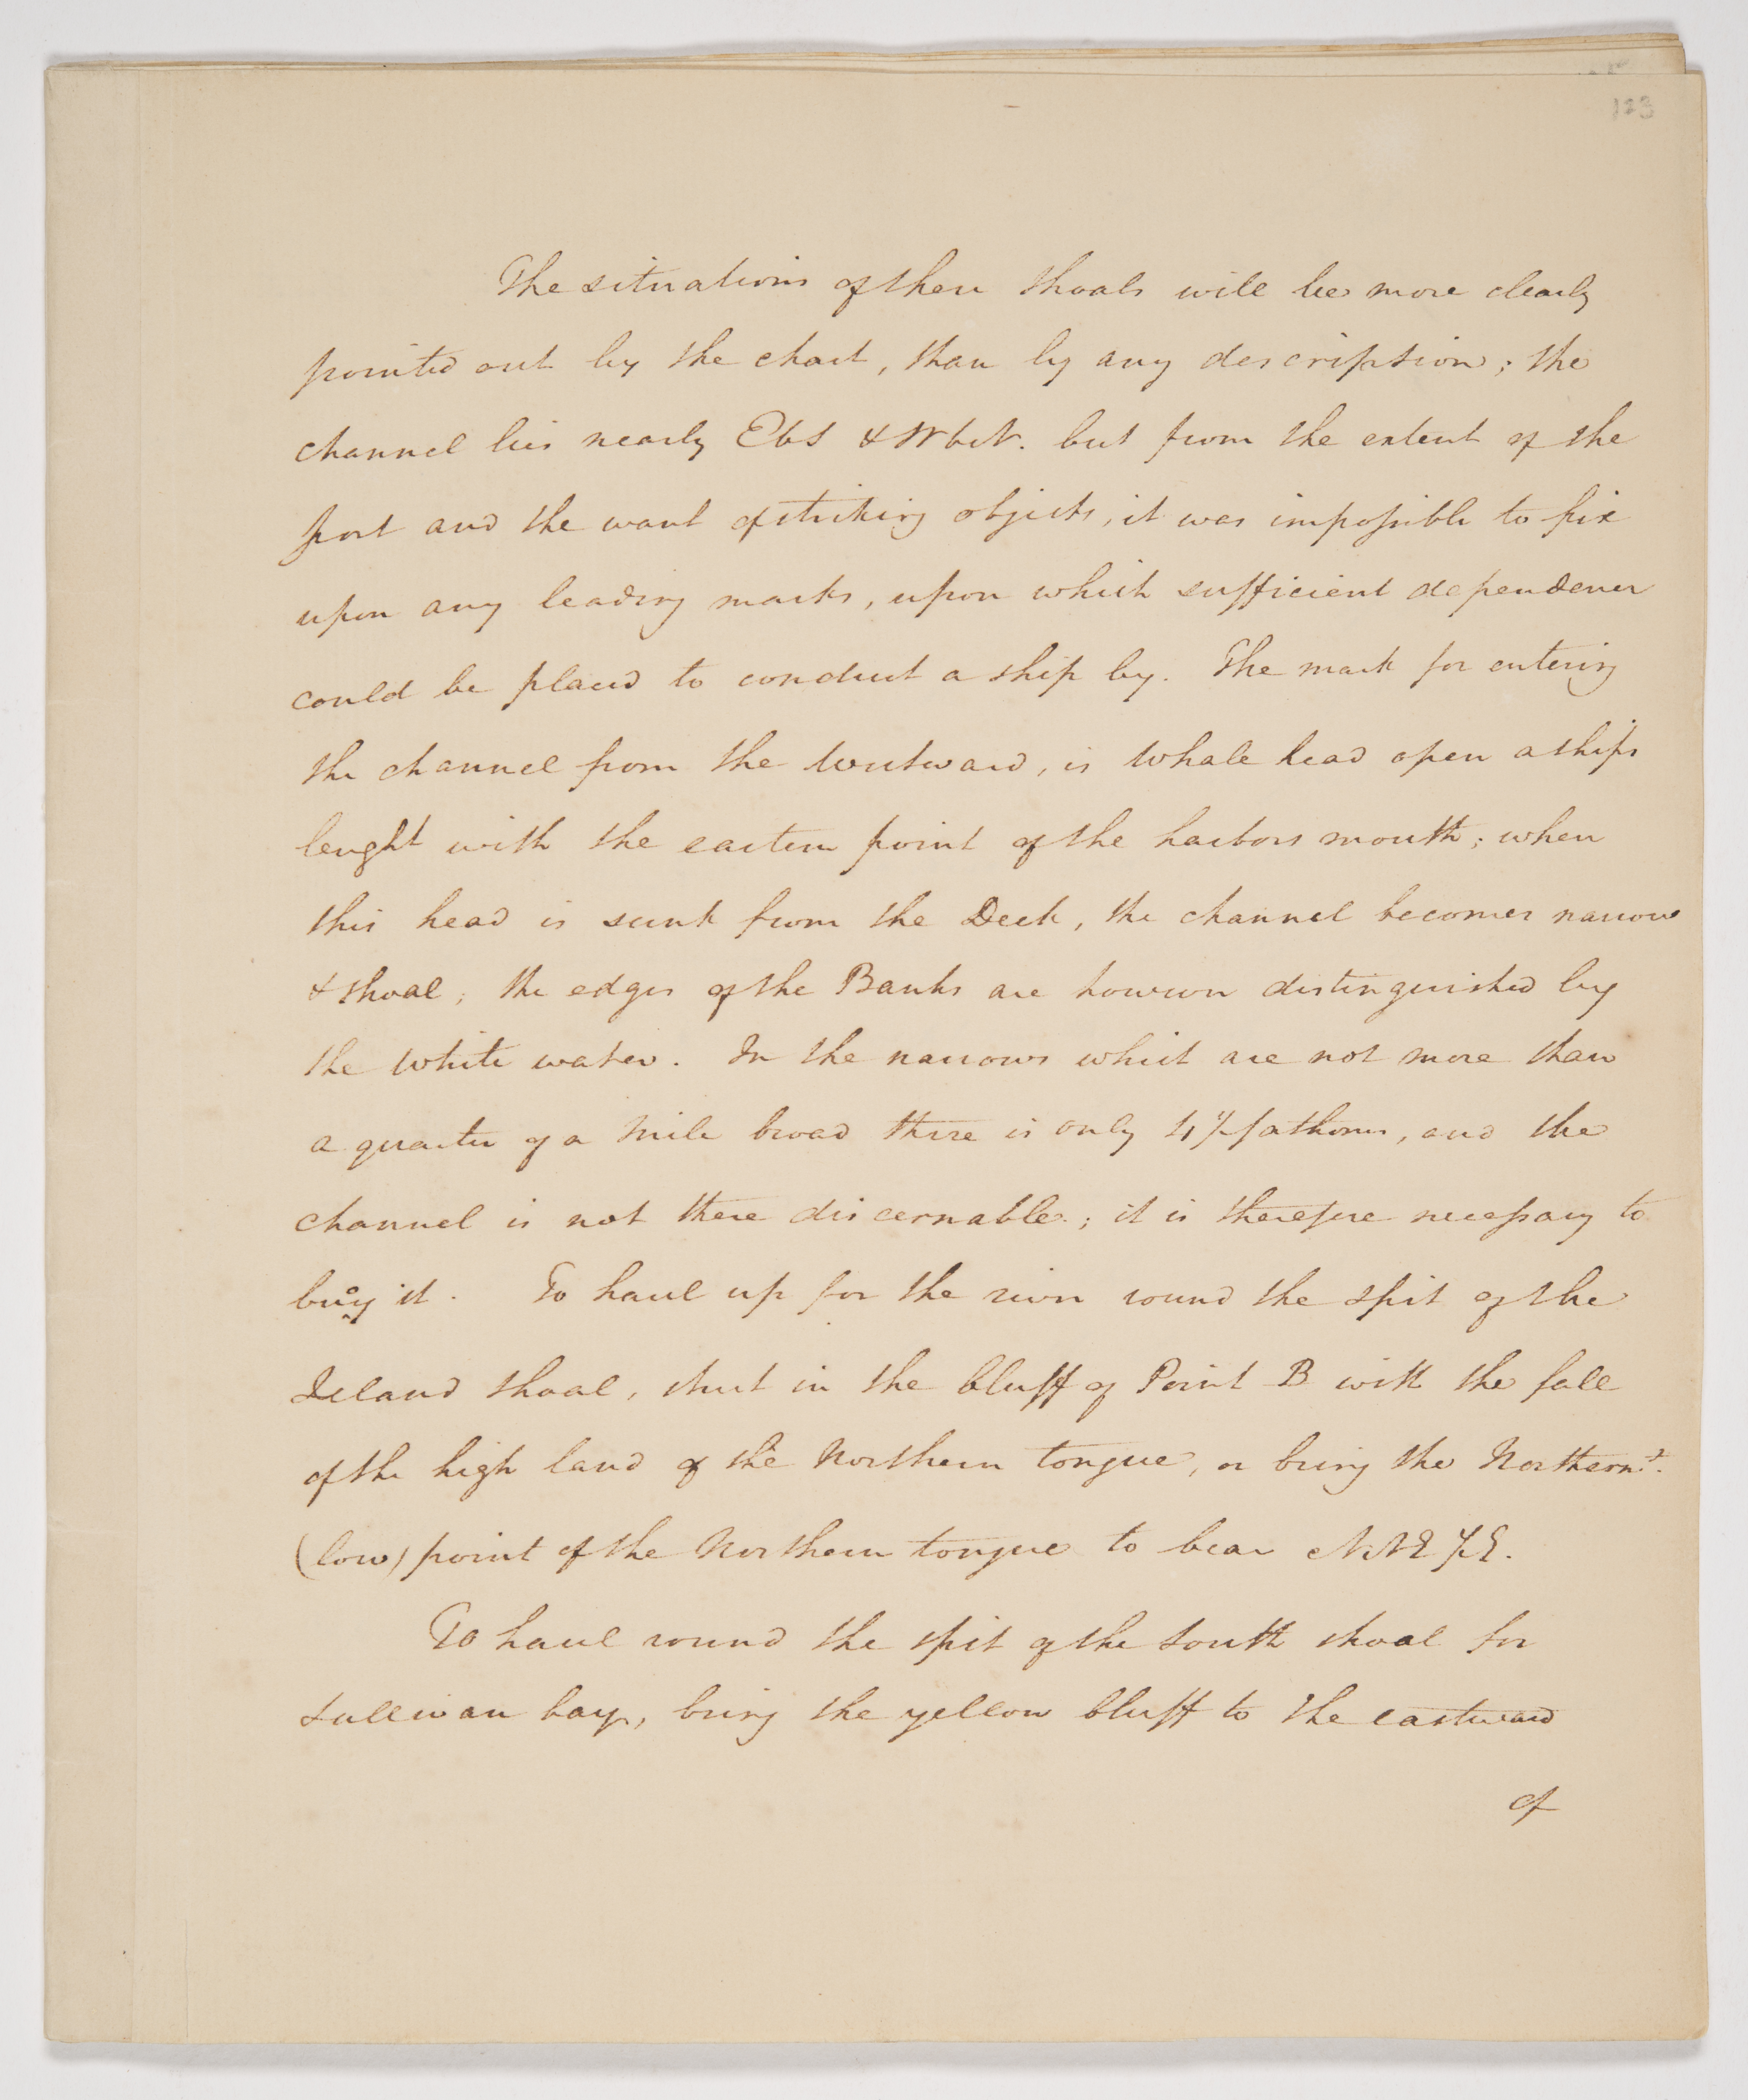 123
The situations of these shoals will be more clearly
pointed out by the chart, than by any description; the
channel lies nearly EbS & WbN. but from the extent of the
port and the want of striking objects, it was impossible to fix
upon any leading marks, upon which sufficient dependence
could be placed to conduct a ship by. The mark for entering
the channel from the Westward, is Whale head open a ships
lenght with the eastern point of the harbors mouth; when
this head is sunk from the Deck, the channel becomes narrow
& shoal; the edges of the Banks are however distinguished by
the white water. In the narrows which are not more than
a quarter of a mile broad there is only 4 1/2 fathoms, and the
channel is not there discernable; it is therefore necessary to
buoy it. To haul up for the river round the spit of the
Island shoal, shut in the bluff of Point B with the fall
of the high land of the Northern tongue, or bring the Northernst.
(low) point of the Northern tongue to bear NNE 1/2 E.
To haul round the spit of the South shoal for
Sullivan bay, bring the yellow bluff to the eastward
of